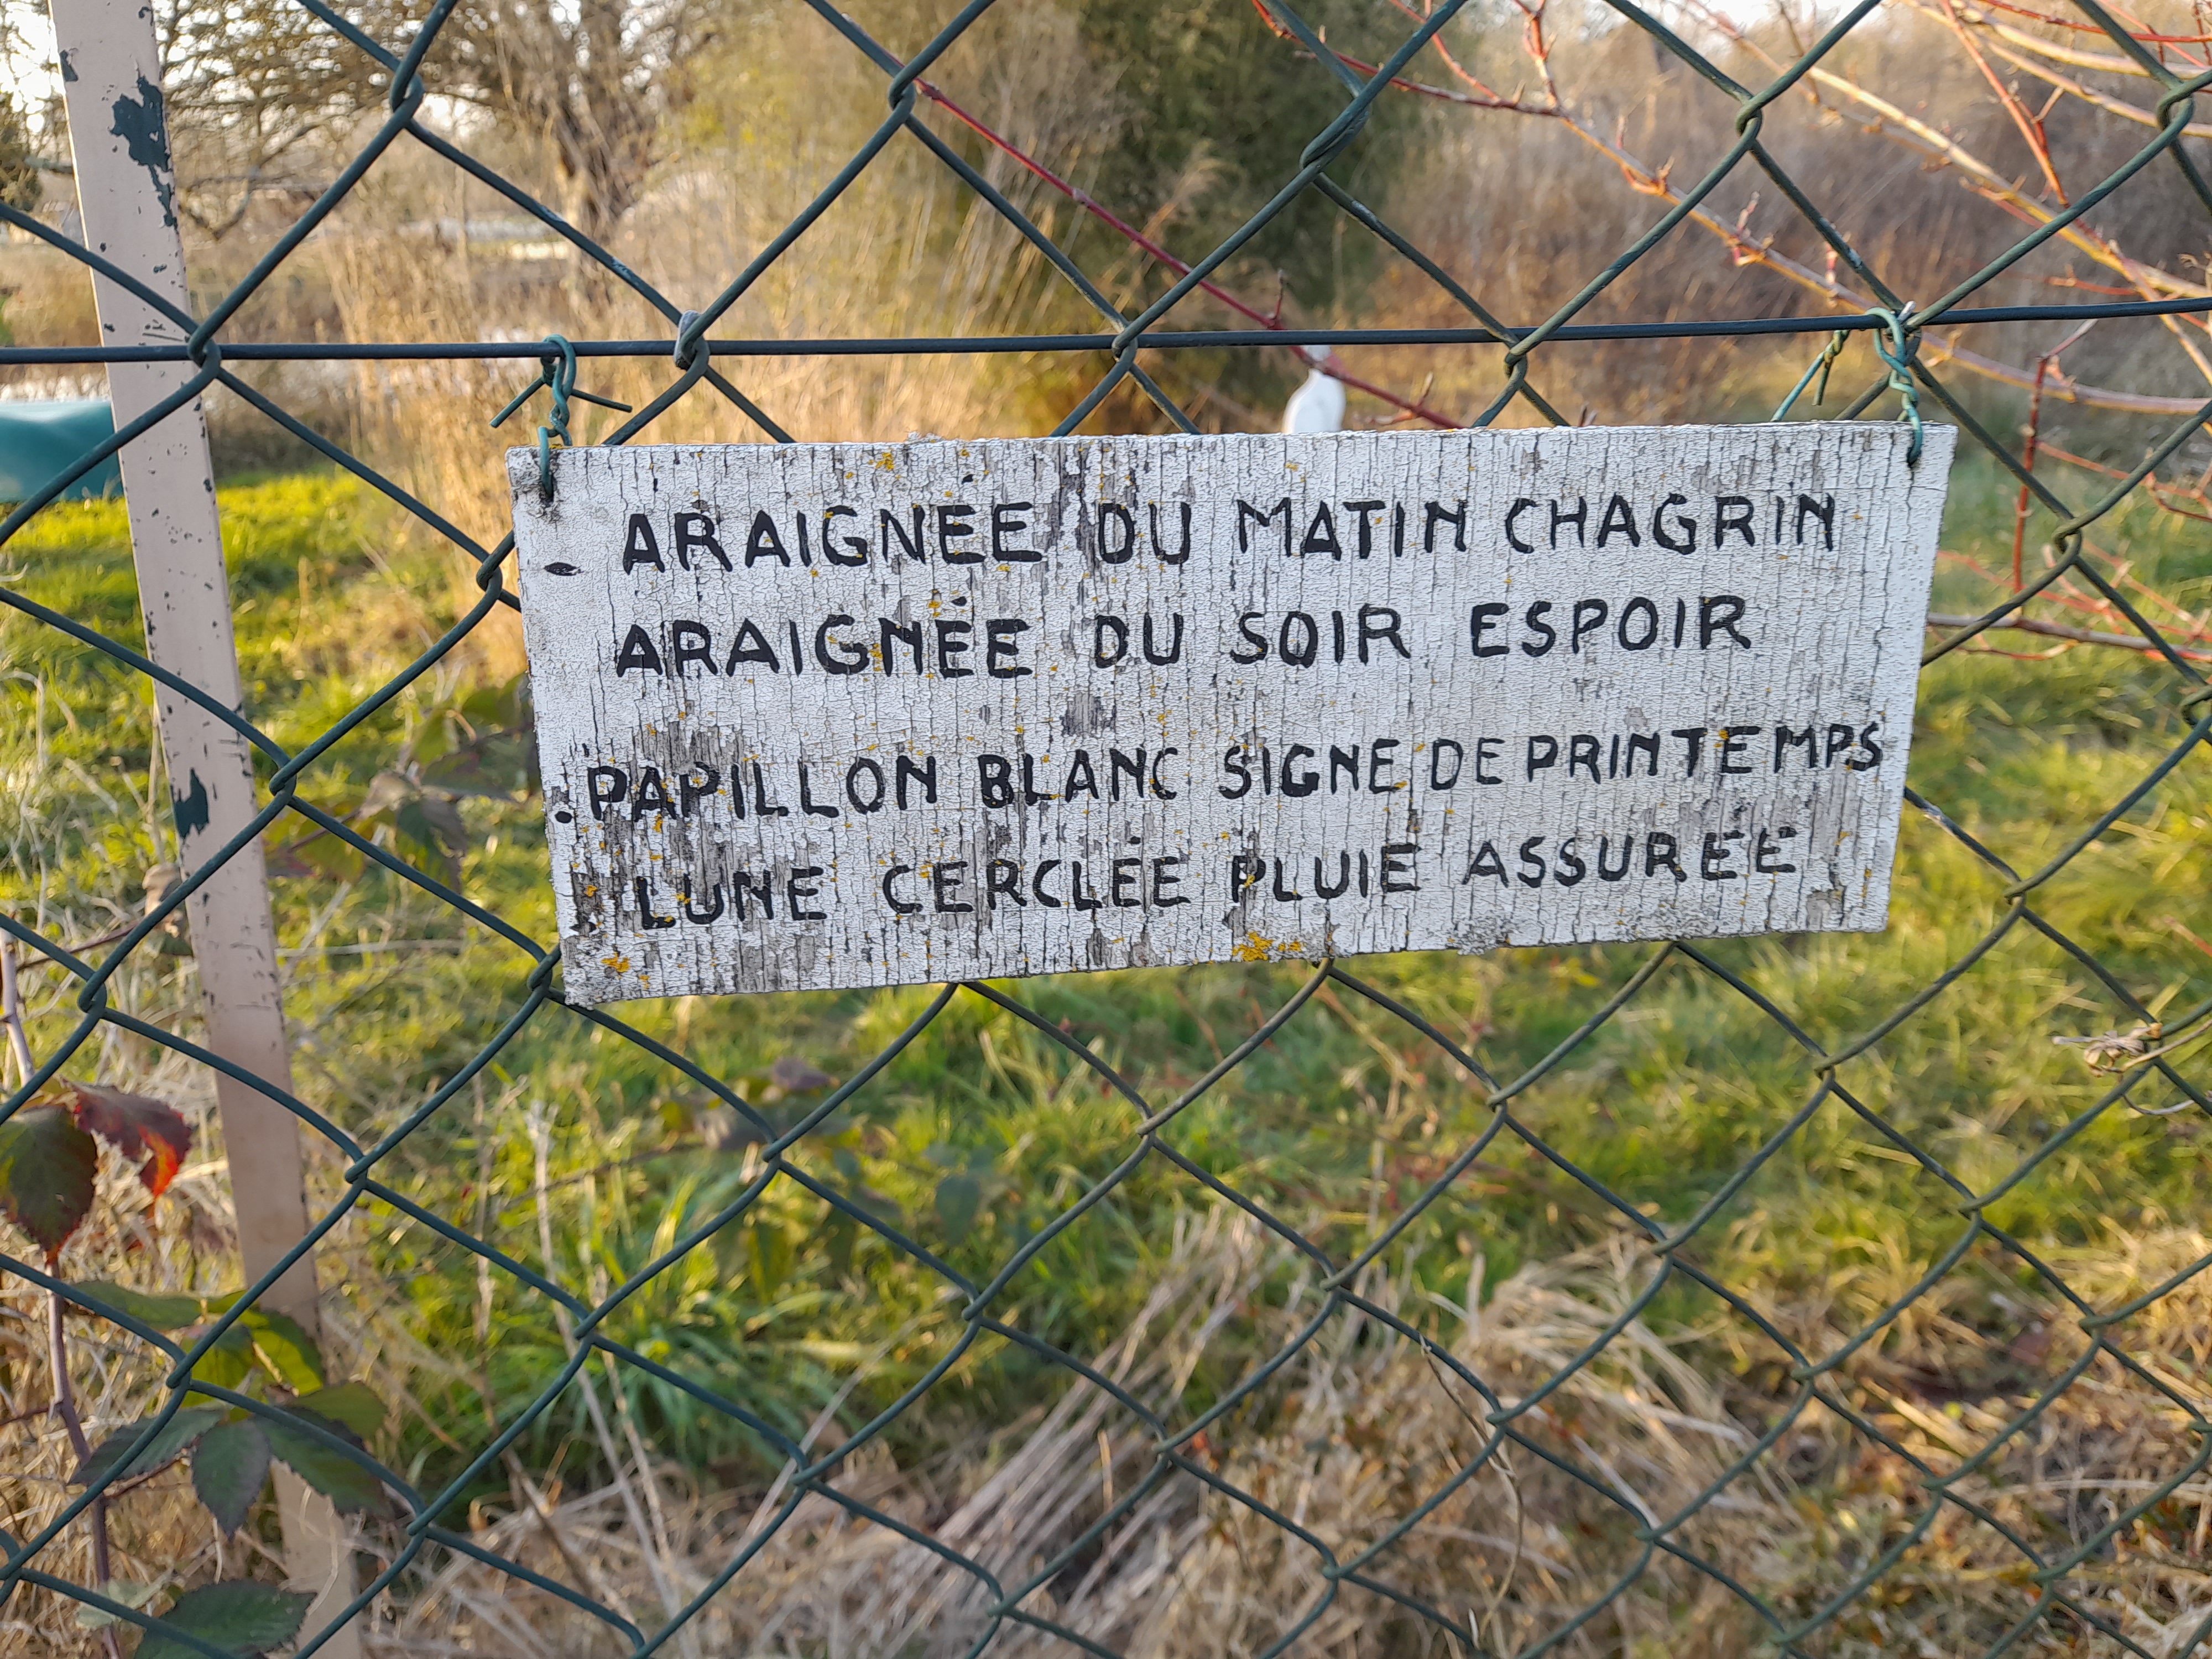 - ARAIGNÉE DU MATIN CHAGRIN
ARAIGNÉE DU SOIR ESPOIR
. PAPILLON BLANC SIGNE DE PRINTEMPS
LUNE CERCLÉE PLUIE ASSURÉE